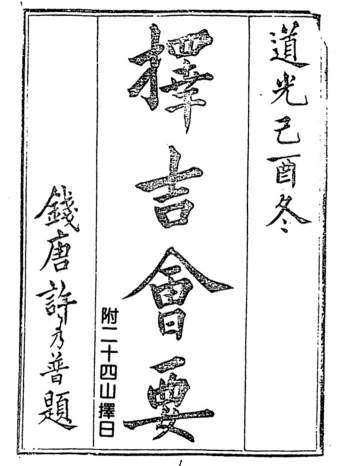 道光己酉冬
擇吉會要
附二十四山擇日
錢唐許乃普題